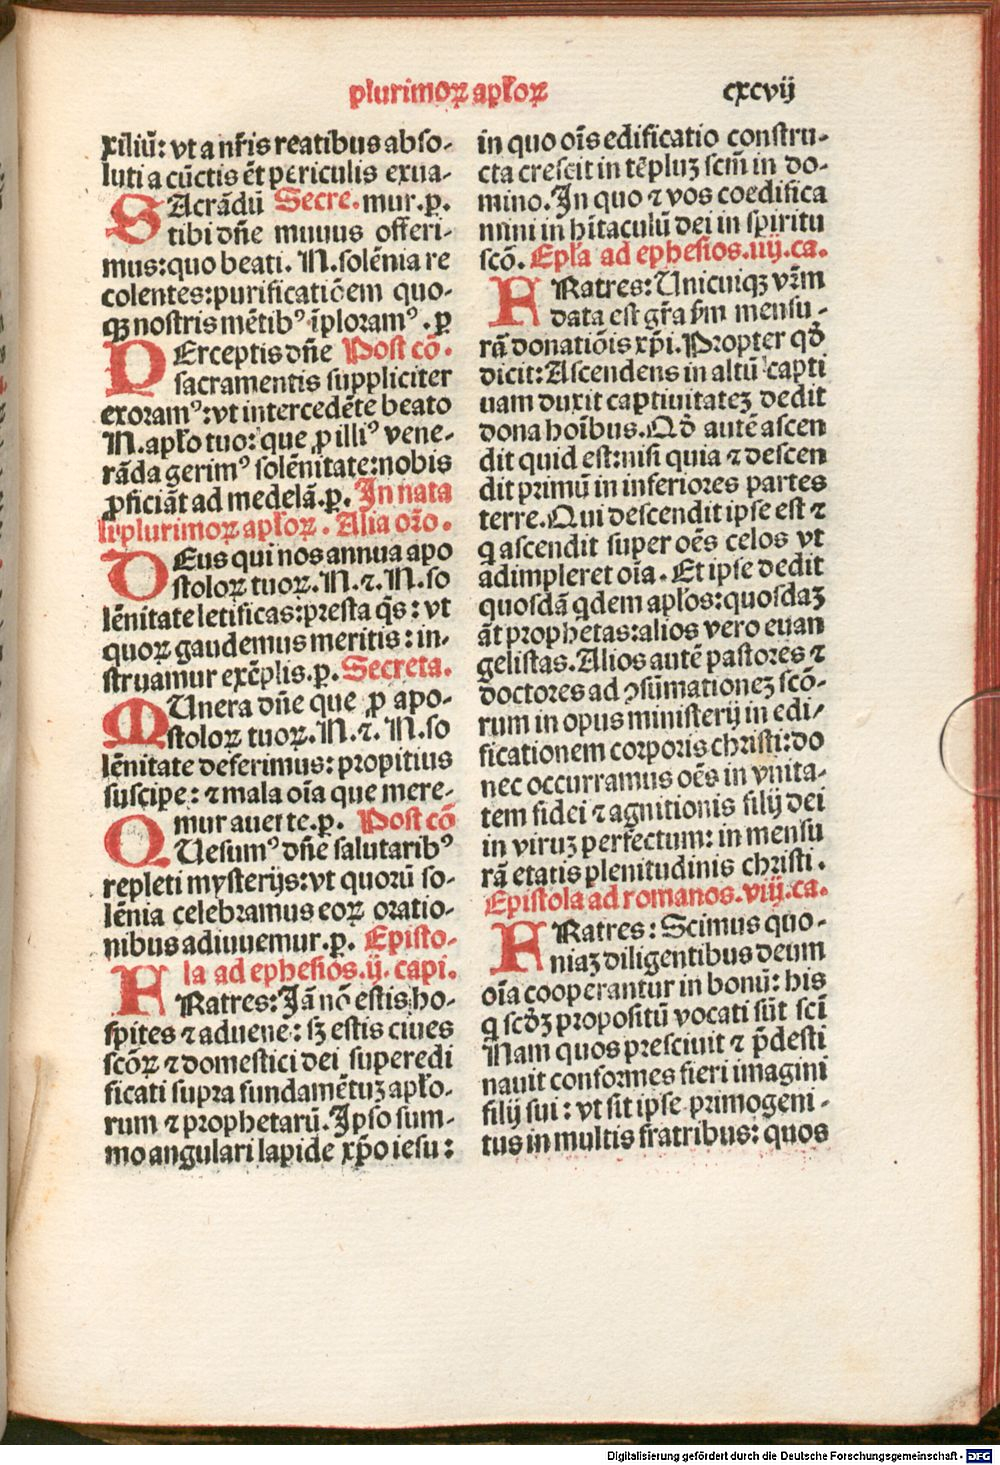 plurimoꝝ apłoꝝ
cxcvij
xiliū: vt a nr̄is reatibus abso-
luti a cūctis ēt periculis exua-
SAcrādū Secre. mur. ꝑ.
tibi dn̄e munus offeri-
mus: quo beati. N. solēnia re
colentes: purificatiōem quo-
qꝫ nostris mētibꝰ īploramꝰ. ꝑ
PErceptis dn̄e Post cō.
sacramentis suppliciter
exoramꝰ: vt intercedēte beato
N. apło tuo: que ꝓ illiꝰ vene-
rāda gerimꝰ solēnitate: nobis
ꝓficiāt ad medelā. ꝑ. In nata
li plurimoꝝ apłoꝝ. Alia oꝛ̄o.
DEus qui nos annua apo
stoloꝝ tuoꝝ. N. ⁊. N. so
lēnitate letificas: presta q̄s: vt
quoꝝ gaudemus meritis: in-
struamur exēplis. ꝑ. Secreta.
MUnera dn̄e que ꝓ apo-
stoloꝝ tuoꝝ. N. ⁊. N. so
lēnitate deferimus: propitius
suscipe: ⁊ mala oīa que mere-
mur auerte. ꝑ. Post cō
QUesumꝰ dn̄e salutaribꝰ
repleti mysterijs: vt quorū so-
lēnia celebramus eoꝝ oratio-
nibus adiuuemur. ꝑ. Episto-
la ad ephesios. ij. capi.
FRatres: Jā nō estis ho-
spites ⁊ aduene: sꝫ estis ciues
scōꝝ ⁊ domestici dei superedi
ficati supra fundamētuꝫ apło-
rum ⁊ prophetarū. Ipso sum-
mo angulari lapide xp̄o iesu:
in quo oīs edificatio constru-
cta crescit in tēpluꝫ scm̄ in do-
mino. In quo ⁊ vos coedifica
mini in hītaculū dei in spiritu
scō. Epła ad ephesios. iiij. ca.
FRatres: Unicuiqꝫ vr̄m
data est gr̄a ẜm mensu-
rā donatiōis xp̄i. Propter qđ
dicit: Ascendens in altū capti
uam duxit captiuitateꝫ dedit
dona hoībus. Qđ autē ascen
dit quid est: nisi quia ⁊ descen
dit primū in inferiores partes
terre. Qui descendit ipse est ⁊
q̇ ascendit super oēs celos vt
adimpleret oīa. Et ipse dedit
quosdā q̇dem apłos: quosdaꝫ
āt prophetas: alios vero euan
gelistas. Alios autē pastores ⁊
doctores ad ꝯsūmationeꝫ scō-
rum in opus ministerij in edi-
ficationem corporis christi: do
nec occurramus oēs in vnita-
tem fidei ⁊ agnitionis filij dei
in viruꝫ perfectum: in mensu
rā etatis plenitudinis christi.
Epistola ad romanos. viij. ca.
FRatres: Scimus quo-
niaꝫ diligentibus deum
oīa cooperantur in bonū: his
q̇ scđꝫ propositū vocati sūt scī
Nam quos presciuit ⁊ p̄desti
nauit conformes fieri imagini
filij sui: vt sit ipse primogeni-
tus in multis fratribus: quos
Digitalisierung gefördert durch die Deutsche Forschungsgemeinschaft - DFG